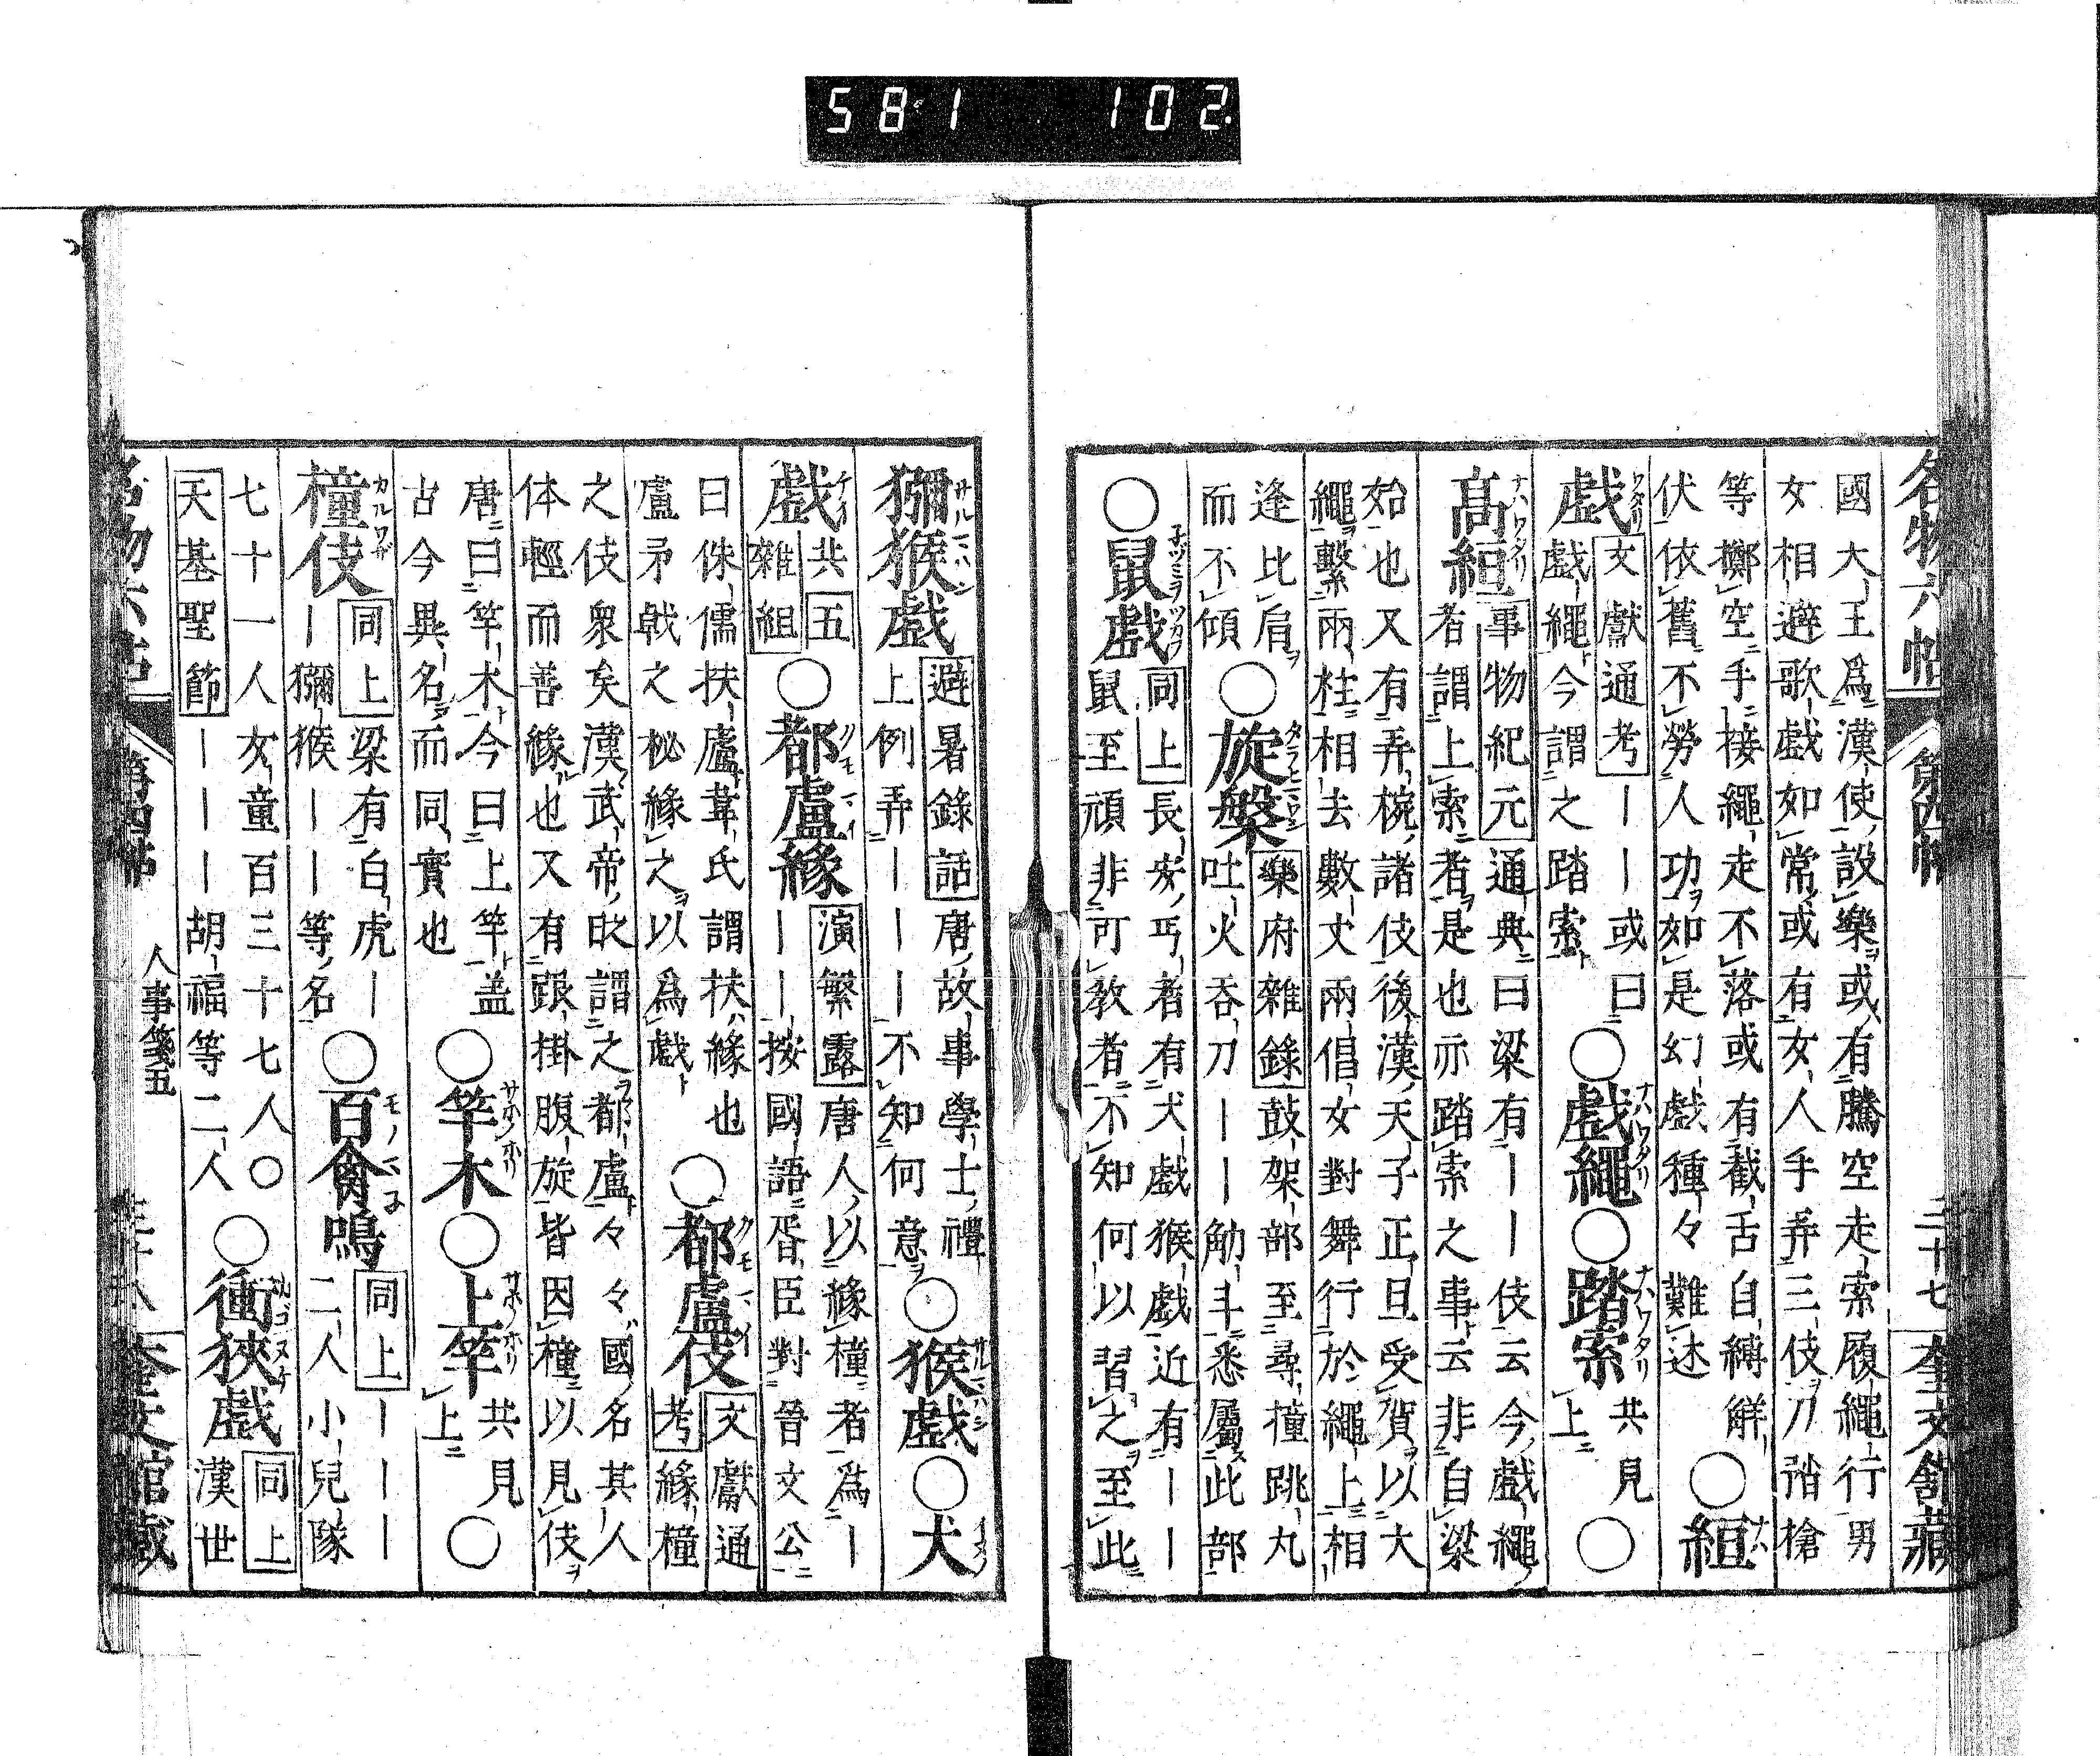 581 102
名物六帖 第四帖 三十七 奎文舘藏
國大王爲漢使設樂或有騰空走索履繩行男
女相避歌戲如常或有女人手弄三伎刀矟槍
等擲空手接繩走不落或有截舌自縛解
伏依舊不勞人功如是幻戲種々難述 ○絙
戲 文獻通考 ーー或曰
戲繩今謂之踏索 ○戲繩○踏索 共見上○
高絙 事物紀元 通典曰梁有ーー伎云今戲繩
者謂上索者是也亦踏索之事云非自梁
始也又有弄椀諸伎後漢天子正旦受賀以大
繩繫兩柱相去數丈兩倡女對舞行於繩上相
逢比肩
而不傾 ○旋槃 樂府雜錄 鼓架部至尋撞跳丸
吐火吞刀ーー觔斗悉屬此部
○鼠戲 同上 長安丐者有犬戲猴戲近有ーー
鼠至頑非可敎者不知何以習之至此
獼猴戲 避暑錄話 唐故事學士禮
上例弄ーーー不知何意 ○猴戲○犬
戲 共五雜組 ○都盧緣 演繁露 唐人以緣橦者爲ー
ーー按國語胥臣對晉文公
曰侏儒扶盧韋氏謂扶緣也
盧矛戟之柲緣之以爲戲 ○都盧伎 文獻通考 緣橦
之伎衆矣漢武帝時謂之都盧々々國名其人
体輕而善緣也又有跟掛腹旋皆因橦以見伎
唐曰竿木今曰上竿盖
古今異名而同實也 ○竿木○上竿 共見上○
橦伎 同上 梁有白虎ー
ー獼猴ーー等名 ○百禽鳴 同上 ーーー
二人小兒隊
七十一人女童百三十七人○
天基聖節 ーーーー胡福等二人 ○衝狹戲 同上 漢世
名物六帖 第四帖 人事箋五 三十八 奎文館藏